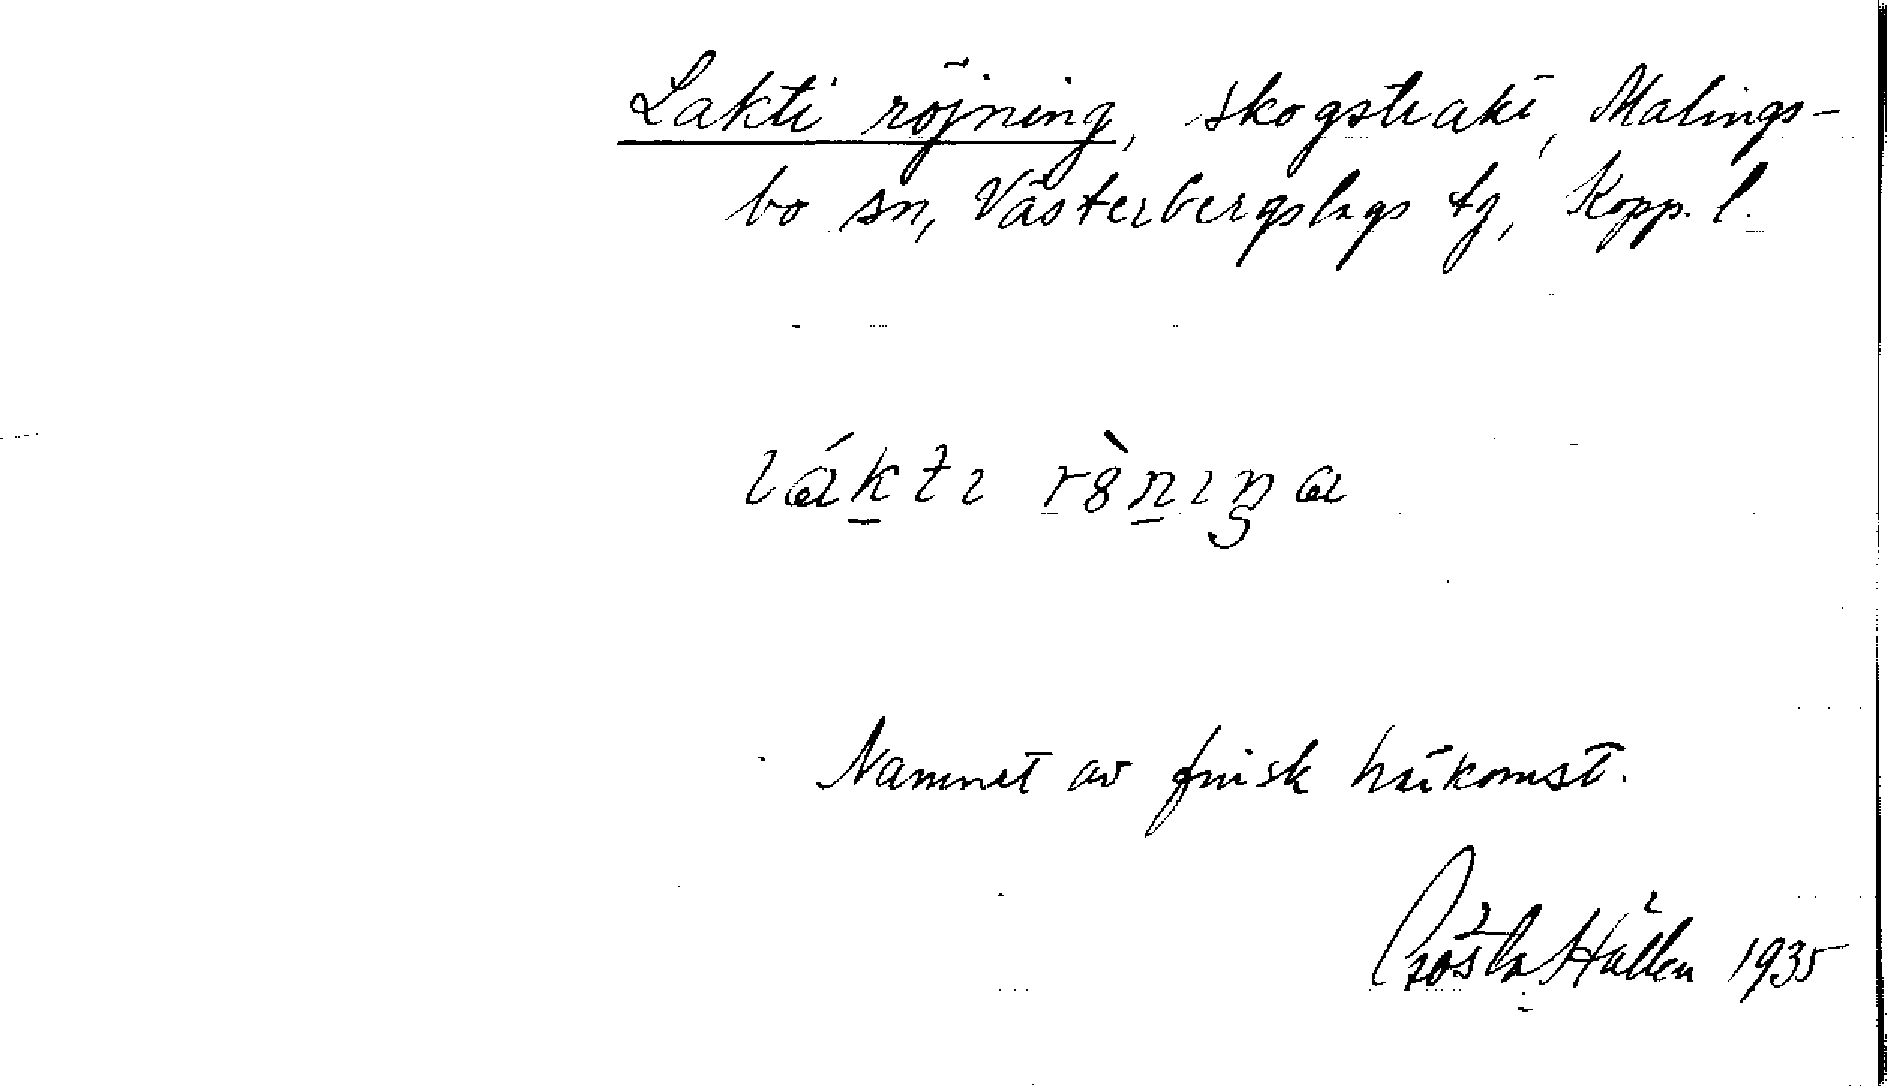 Lakti röjning, skogstrakt, Malings-
bo sn, Västerbergslags tg, Kopp. l.
lákti rö̀niŋa
Namnet av finsk härkomst.
Gösta Hållen 1935